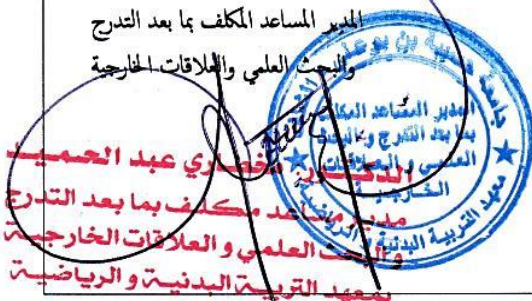 المدير المساعد المكلف بما بعد التدرج
والبحث العلمي والعلاقات الخارجية
المدير المساعد المكلف
بما بعد التدرج والبحث
العلمي والعلاقات
الخارجية
معهد التربية البدنية و الرياضية
الدكتور عبد الحميد
مدير مساعد مكلف بما بعد التدرج
والبحث العلمي و العلاقات الخارجية
بمعهد التربية البدنية و الرياضية